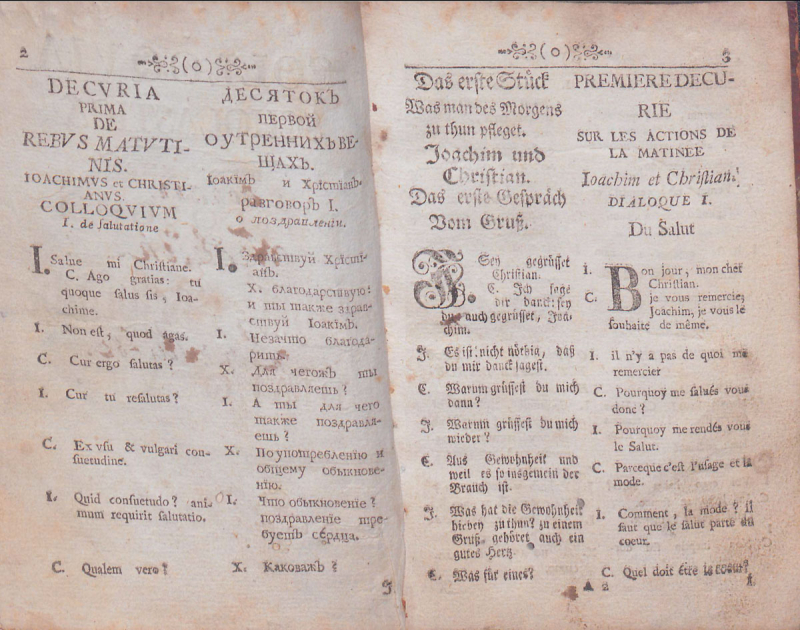 2
(o)
DECVRIA
PRIMA
DE
REBVS MATVTI-
NIS.
IOACHIMVS et CHRISTI-
ANVS.
COLLOQVIVM
I. de salutatione
I. Salue mi Christiane.
C. Ago gratias: tu
quoque salus sis, Ioa-
chime.
I. Non est, quod agas.
C. Cur ergo salutas?
I. Cur tu resalutas?
C. Ex vsu & vulgari con-
suetudine.
I. Quid consuetudo? ani-
mum requirit salutatio.
C. Qualem vero?
ДЕСЯТОКЪ
ПЕРВОЙ
О УТРЕННИХЪ ВЕ-
ЩАХЪ.
Іоакімъ и Хрістіанъ.
разговоръ I.
о поздравленіи.
I. Здравствуй Хрісті-
анъ.
X. благодарствую:
и ты также здрав-
ствуй Іоакімъ.
I. Незачто благода-
рить.
X. Для чегожъ ты
поздравляешь?
I. А ты для чего
также поздравля-
ешь?
X. По употребленію и
общему обыкнове-
нію.
I. Что обыкновеніе?
поздравленіе тре-
буетъ сердца.
X. Каковажъ?
J
(o)
3
Das erste Stück
Was man des Morgens
zu thun pfleget.
Joachim und
Christian.
Das erste Gespräch
Vom Gruß.
J. Sey gegrüsset
Christian.
C. Ich sage
dir danck: sey
du auch gegrüsset, Joa-
chim.
J. Es ist nicht nöthig, daß
du mir danck sagest.
C. Warum grüssest du mich
dann?
J. Warum grüssest du mich
wieder?
C. Aus Gewohnheit und
weil es so insgemein der
Brauch ist.
J. Was hat die Gewohnheit
hiebey zu thun? zu einem
Gruß gehöret auch ein
gutes Hertz
C. Was für eines?
PREMIERE DECU-
RIE
SUR LES ACTIONS DE
LA MATINEE
Ioachim et Christian.
DIALOQUE I.
Du Salut
I. Bon jour, mon cher
Christian.
C. je vous remercie;
Joachim, je vous le
souhaite de même.
I. il n'y a pas de quoi me
remercier
C. Pourquoy me salués vous
donc?
I. Pourquoy me rendés vous
le Salut.
C. Parceque c'est l'usage et la
mode.
I. Comment, la mode? il
faut que le salut parte du
coeur.
C. Quel doit être le coeur?
A 2